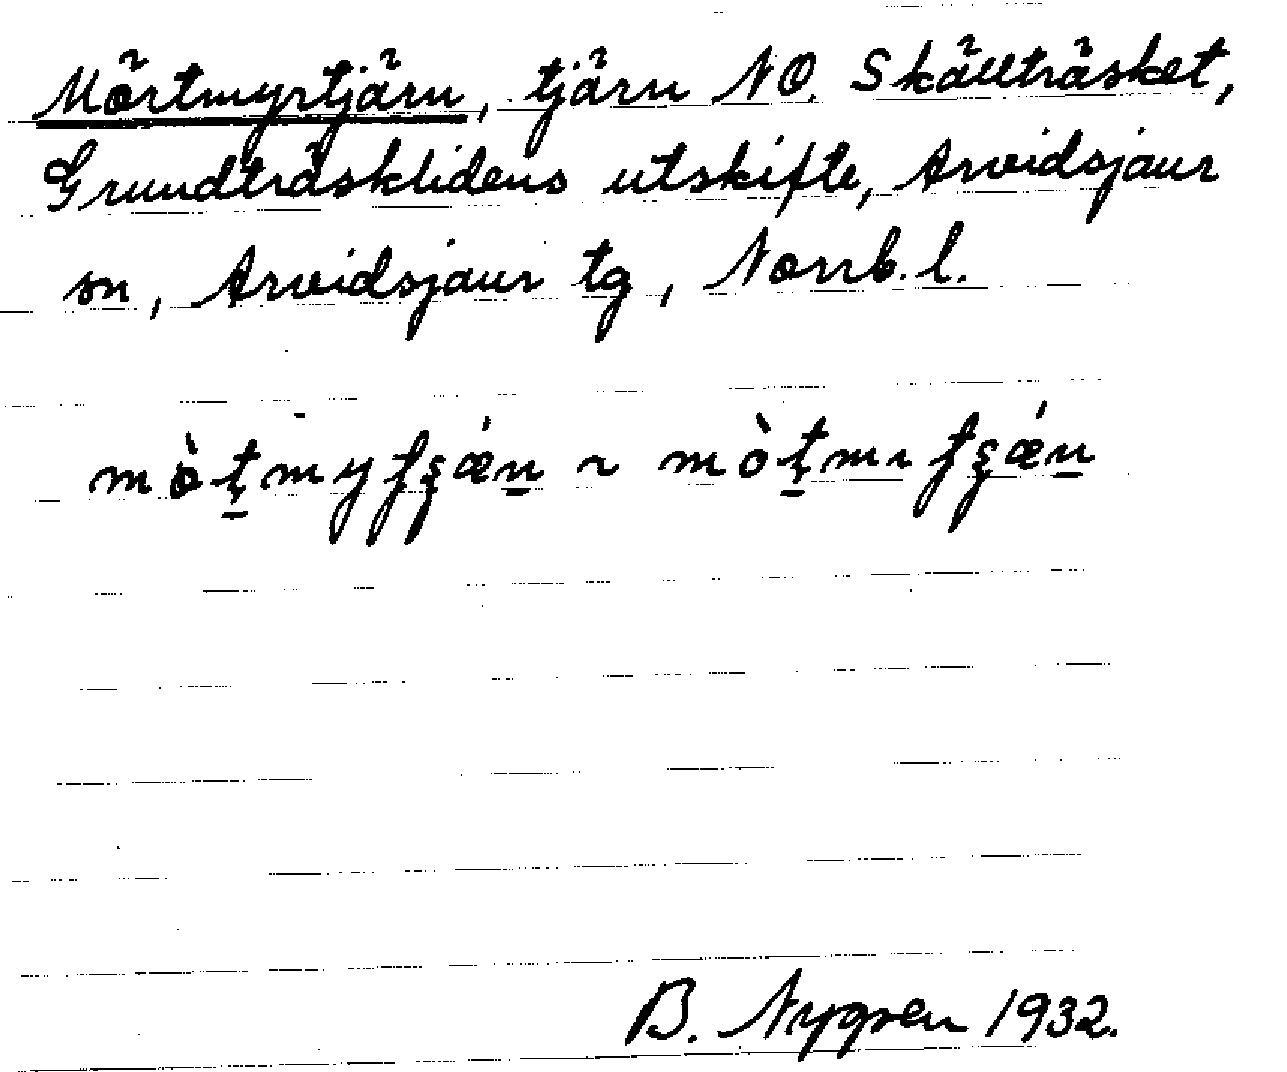 Mörtmyrtjärn, tjärn NO. Skällträsket,
Grundträsklidens utskifte, Arvidsjaur
sn, Arvidsjaur tg, Norrb. l.
B. Nygren 1932.